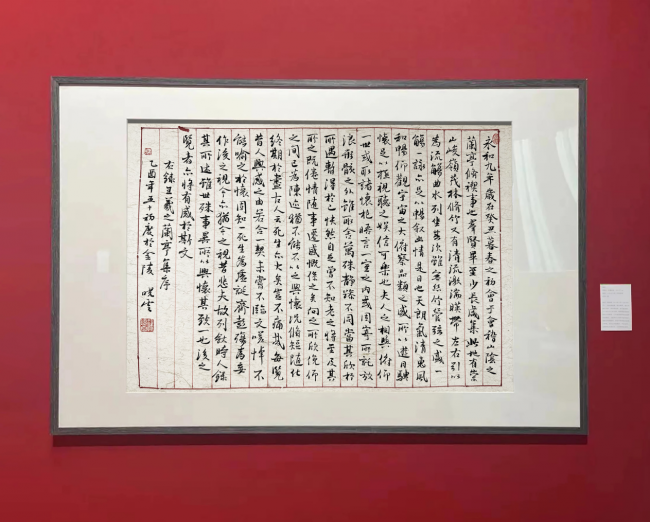 永和九年歲在癸丑暮春之初會于會稽山陰之
蘭亭脩稧事也羣賢畢至少長咸集此地有崇
山峻嶺茂林脩竹又有清流激湍暎帶左右引以
為流觴曲水列坐其次雖無絲竹管弦之盛一
觴一詠亦足以暢叙幽情是日也天朗氣清惠風
和暢仰觀宇宙之大俯察品類之盛所以遊目騁
懷足以極視聽之娛信可樂也夫人之相與俯仰
一世或取諸懷抱晤言一室之内或因寄所託放
浪形骸之外雖取舍萬殊靜躁不同當其欣於
所遇暫得於己快然自足曾不知老之將至及其
所之既倦情隨事遷感慨係之矣向之所欣俛仰
之間已為陳迹猶不能不以之興懷況脩短隨化
終期於盡古人云死生亦大矣豈不痛哉每覽
昔人興感之由若合一契未嘗不臨文嗟悼不
能喻之於懷固知一死生為虛誕齊彭殤為妄
作後之視今亦猶今之視昔悲夫故列叙時人錄
其所述雖世殊事異所以興懷其致一也後之
覽者亦將有感於斯文
右錄王羲之蘭亭集序
乙酉年五十初度於金陵